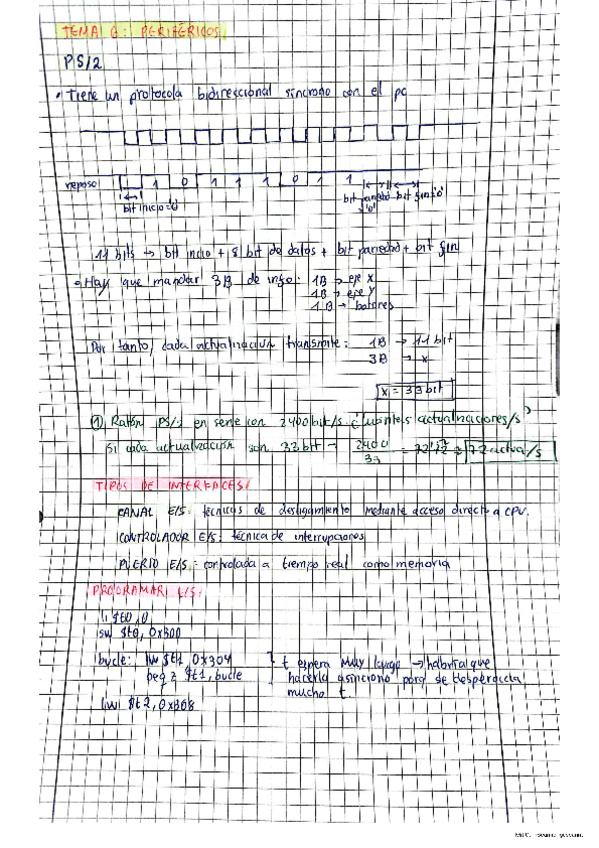 TEMA 6: PERIFÉRICOS
PS/2
• Tiene un protocolo bidireccional síncrono con el pc
reposo 1 0 1 1 1 0 1 1
bit inicio='0' bit paridad bit fin='0'
'0'
11 bits → bit inicio + 8 bit de datos + bit paridad + bit fin
• Hay que mandar 3B de info: 1B → eje X
1B → eje Y
1B → botones
Por tanto, cada actualización transmite: 1B → 11 bit
3B → x
x = 33 bit
① Ratón PS/2 en serie con 2400 bit/s. ¿Cuántas actualizaciones/s?
Si cada actualización son 33 bit → 2400
33
= 72'72 ≈ 72 actua/s
TIPOS DE INTERFACES:
CANAL E/S: técnicas de desligamiento mediante acceso directo a CPU.
CONTROLADOR E/S: técnica de interrupciones
PUERTO E/S: controlada a tiempo real como memoria
PROGRAMAR E/S:
li $t0, 0
sw $t0, 0x300
bucle: lw $t1, 0x304 } t espera muy largo → habría que
beqz $t1, bucle hacerlo asíncrono porq se desperdicia
mucho t.
lw $t2, 0x308